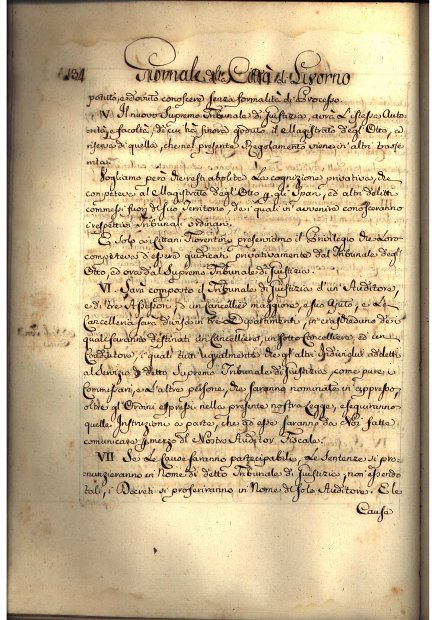 134 Giornale della Città di Livorno
potuto, e dovuto conoscere senza formalità di Processo.
V. Il nuovo Supremo Tribunale di Giustizia, avrà l'istessa Auto
rità, e facoltà, di cui hà finora goduto il Magistrato degl'Otto, a
riserva di quella, che nel presente Regolamento viene in altri trasfe
rita.
Vogliamo però che resti abolita la cognizione privativa, che
competeva al Magistrato degl'Otto p gli Spari, ed altri delitti
commessi fuori del suo Territorio, de i quali in avvenire conosceranno
i respettivi Tribunali ordinarj.
E solo i Cittadini Fiorentini il Privilegio che loro
competeva d'essere giudicati privativamente dal Tribunale degl'
Otto, ed ora dal Supremo Tribunale di Giustizia.
VI. Sarà composto il Tribunale di Giustizia d'un Auditore,
e di tre Assessori, d'un Cancellier maggiore, e suo Ajuto, e la
Cancelleria sarà divisa in tre Dipartimenti, in ciascheduno de i
quali saranno destinati un Cancelliere, un Sotto Cancelliere, ed un
Coadiutore, i quali tutti ugualmente che gl'altri Individui addetti
al Servizio di detto Supremo Tribunale di Giustizia, come pure i
Commissari, e l'altre persone, che saranno nominate in appresso,
oltre gl'Ordini espressi nella presente nostra Legge, eseguiranno
quelle Instruzioni a parte, che ad esse saranno da Noi fatte
comunicare p mezzo del Nostro Auditor Fiscale.
VII Se le Cause saranno partecipabili, le Sentenze si pro
nunzieranno in Nome di detto Tribunale di Giustizia, non essendo
tali, i Decreti si proferiranno in Nome del solo Auditore. E le
Causa